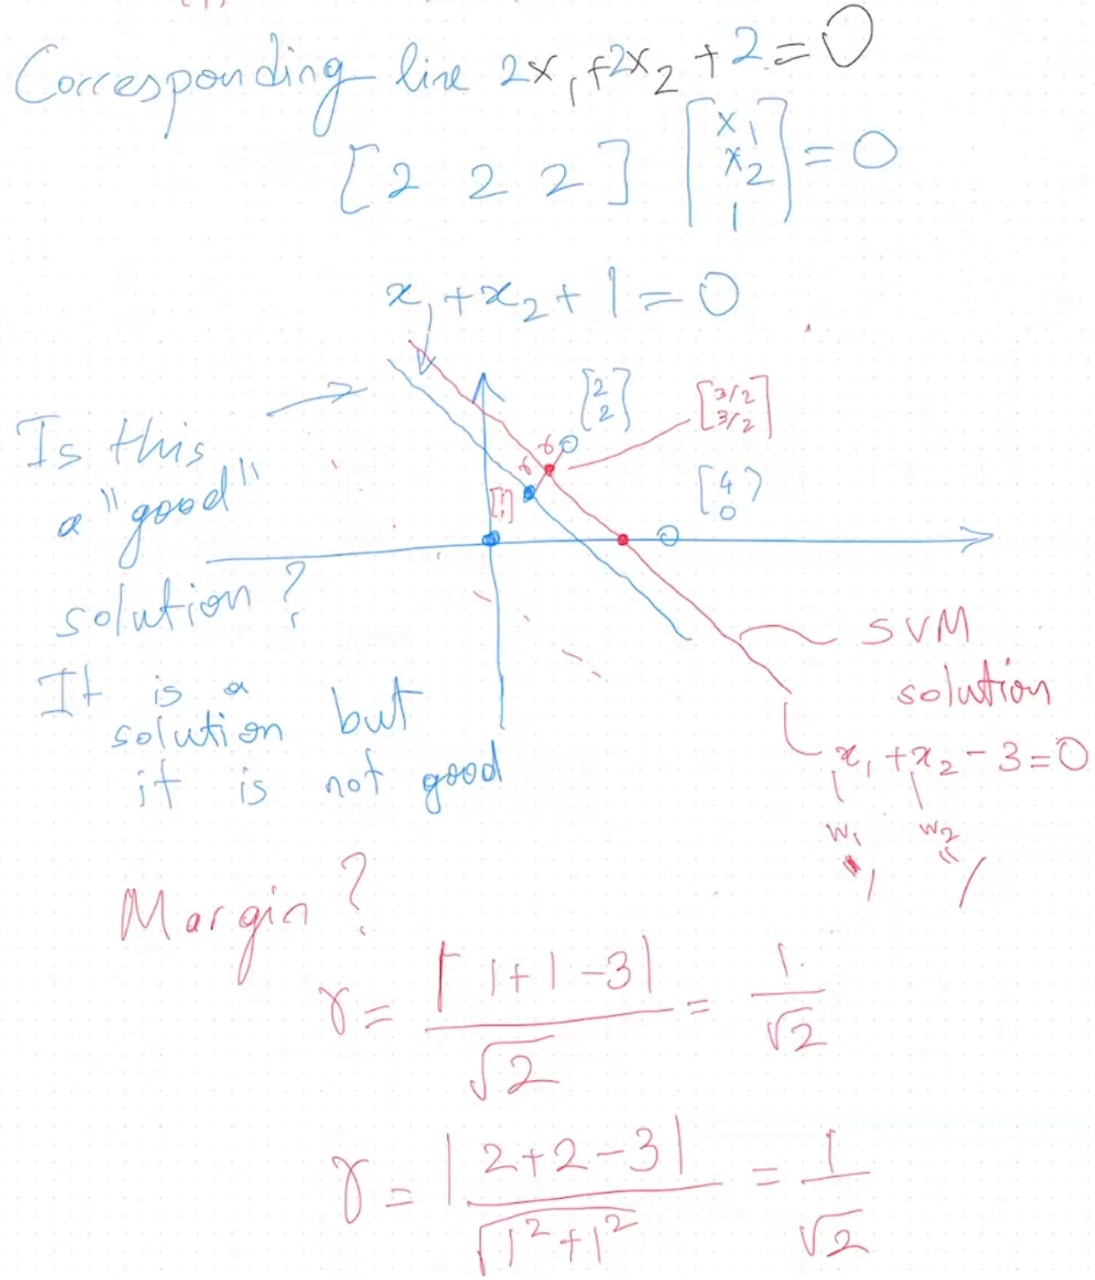 Corresponding line 2x₁+2x₂+2=0
[2 2 2] [x₁ x₂ 1] = 0
x₁+x₂+1=0
[2 2]
[3/2 3/2]
Is this
a "good"
solution?
γ
γ
[1 1]
[4 0]
It is a
solution but
it is not good
SVM
solution
x₁+x₂-3=0
w₁ w₂
" "
1 1
Margin?
γ = |1+1-3| / √2 = 1/√2
γ = |2+2-3| / √1²+1² = 1/√2